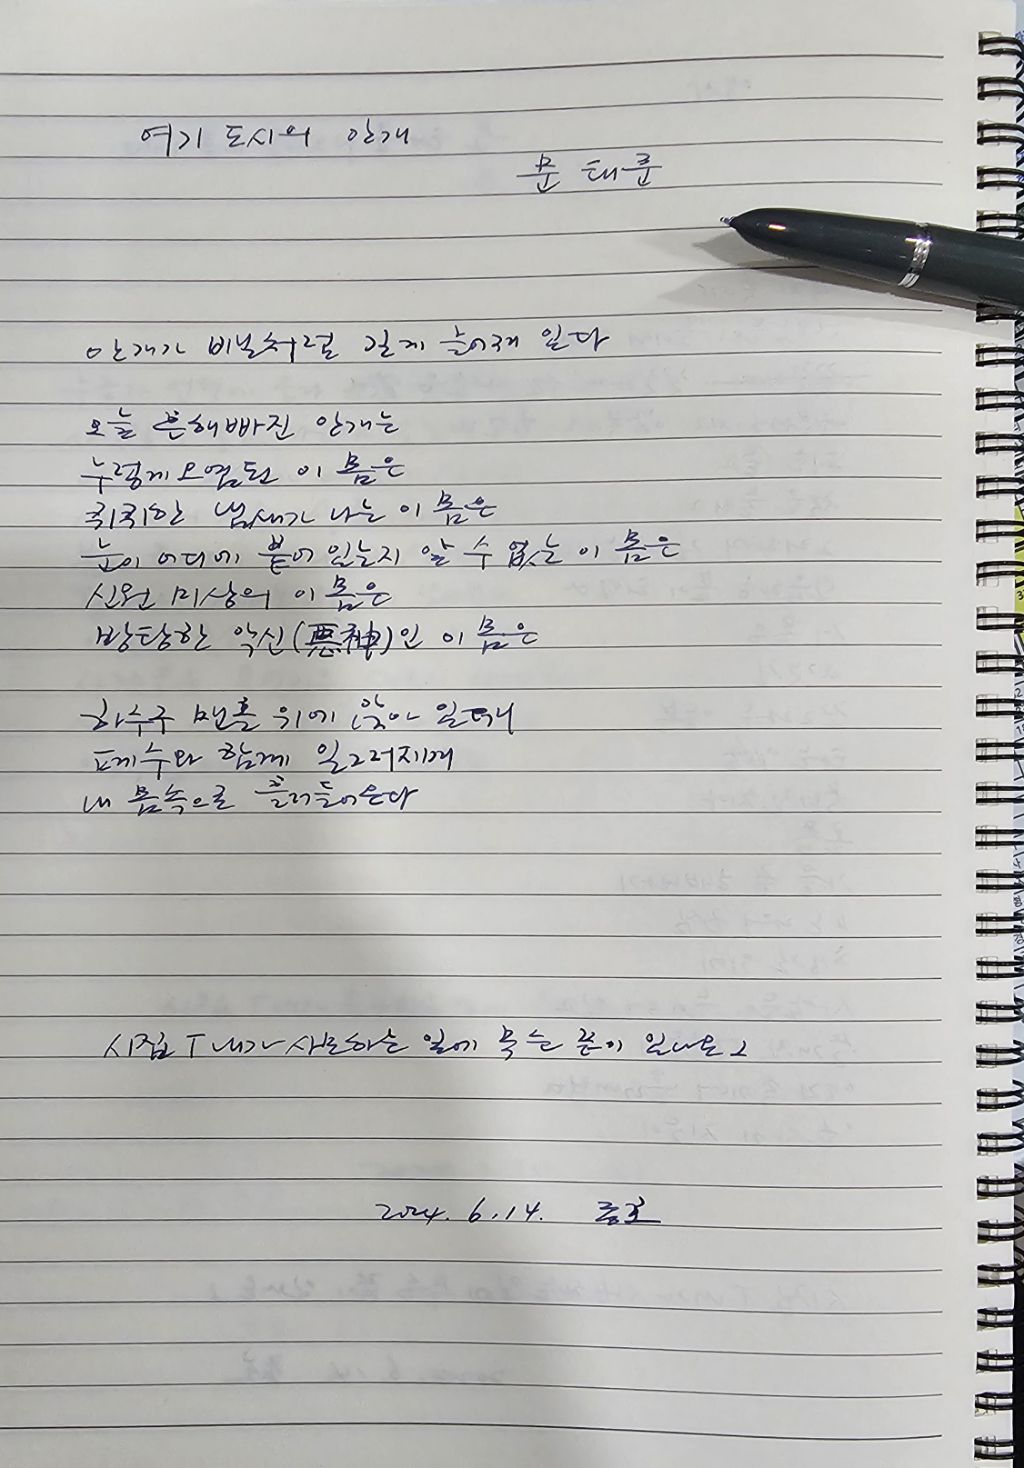 여기 도시의 안개
문 태준
안개가 비닐처럼 길게 늘어져 있다
오늘 흔해빠진 안개는
누렇게 오염된 이 몸은
퀴퀴한 냄새가 나는 이 몸은
눈이 어디에 붙어 있는지 알 수 없는 이 몸은
신원 미상의 이 몸은
방탕한 악신(惡神)인 이 몸은
하수구 맨홀 위에 앉아 있더니
폐수와 함께 일그러지며
내 몸속으로 흘러들어온다
시집 「내가 사모하는 일에 무슨 끝이 있나요」
2024. 6. 14.